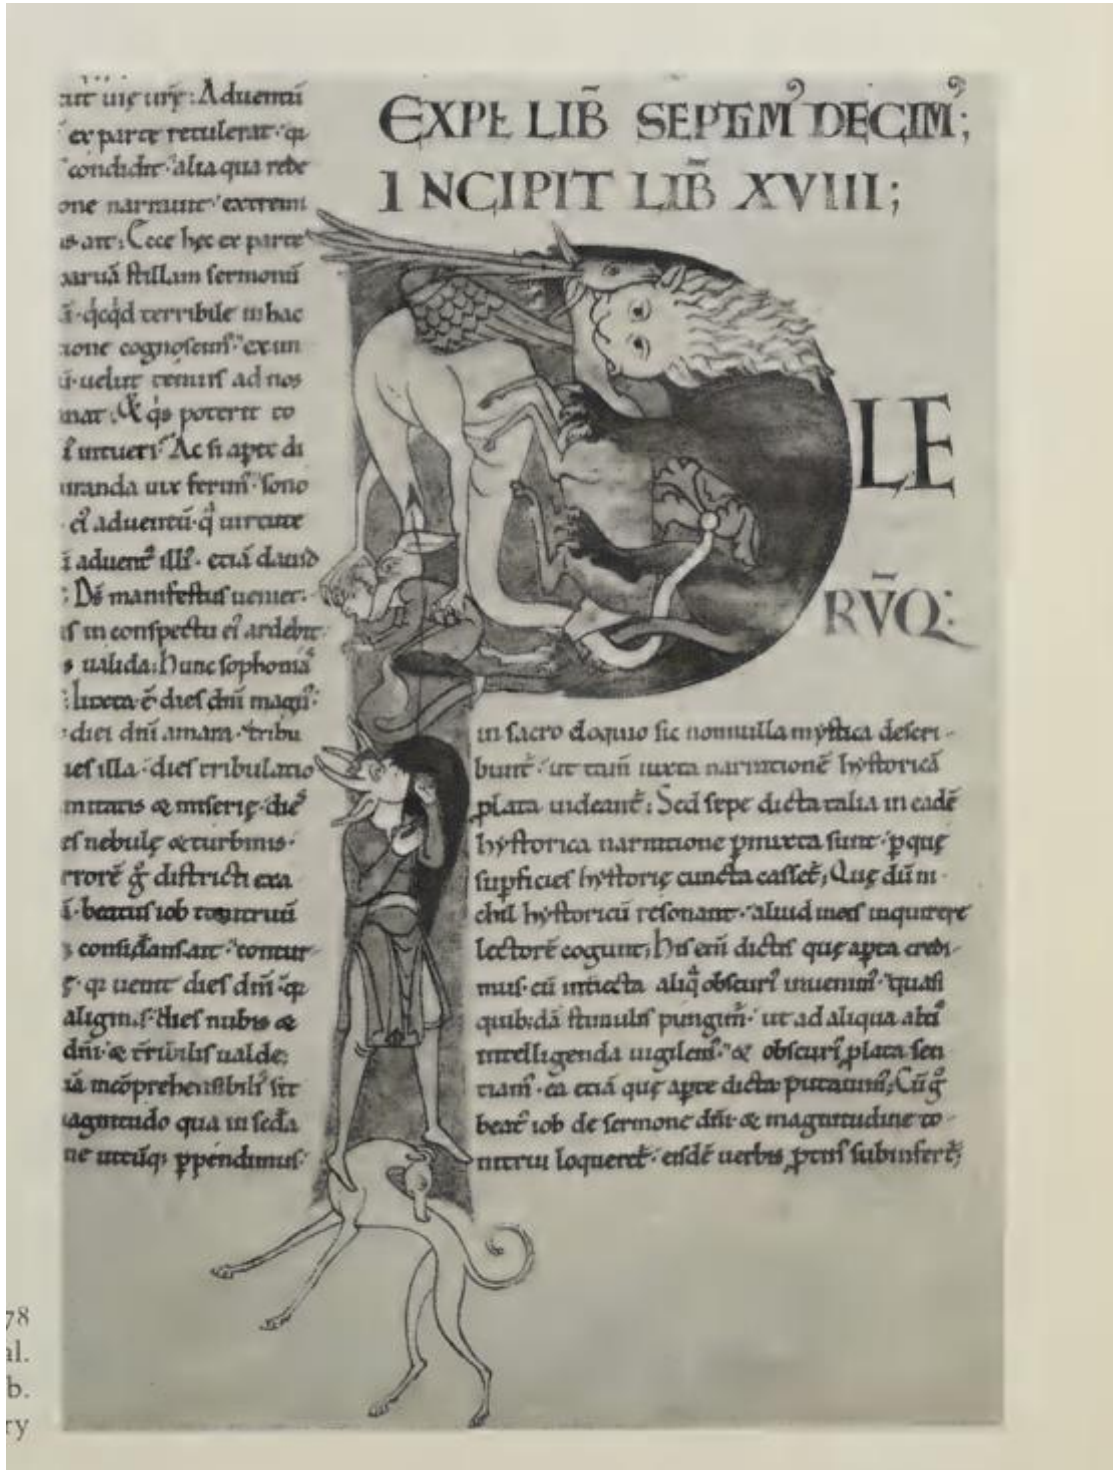 ex parte retulerat · q
condidit · alia qua rede
one narrauit · extremi
is ait : Ecce hęc ex parte
paruā stillam sermonū
ī · qcqd terribile in hac
tione cognoscim · ex un
ū · uelut tenuis ad nos
nat : & qs poterit to
intueri · Ac si apte di
uranda uix ferim · sono
aduentū · q uirtute
aduent illi · etiā dauid
: Ds manifestus ueniet ·
is in conspectu ei ardebit ·
s ualida : hunc sophoniā
: Iuxta ē dies dnī magn ·
· diei dnī amara · tribu
ies illa · dies tribulatio
mitatis & miserię · die
es nebulę & turbinis ·
rrorē g districti exa
beatus iob
consideans ait · contur
ę · q uenit dies dnī · q
aliginis · dies nubis &
dnī · & terribilis ualde ;
ia incōprehensibil sit
agnitudo qua in secda
ne utcūq ppendimus ·
EXPL LIB SEPTIM DECIM ;
INCIPIT LIB XVIII ;
PLE
RVQ ·
in sacro eloquio sic nonnulla mystica descri-
bunt · ut tam iuxta narrationē hystoricā
plata uideant ; Sed sepe dicta talia in eadē
hystorica narratione pmixta sunt · p quę
supficies hystorię cuncta casset ; Quę dū ni-
chil hystoricū resonant · aliud mox inquirere
lectorē cogunt ; His eni dictis quę apta credi-
mus · cū interiecta aliq obscuri inuenim · quasi
quibdā stimulis pungim · ut ad aliqua alti
intelligenda uigilem · & obscuri plata sen
tiam · ea etiā quę apte dicta putauim ; Cū g
beat iob de sermone dnī · & magnitudine to-
nitrui loqueret · eisdē uerbis ptin subinfert ;
78
al.
b.
ry